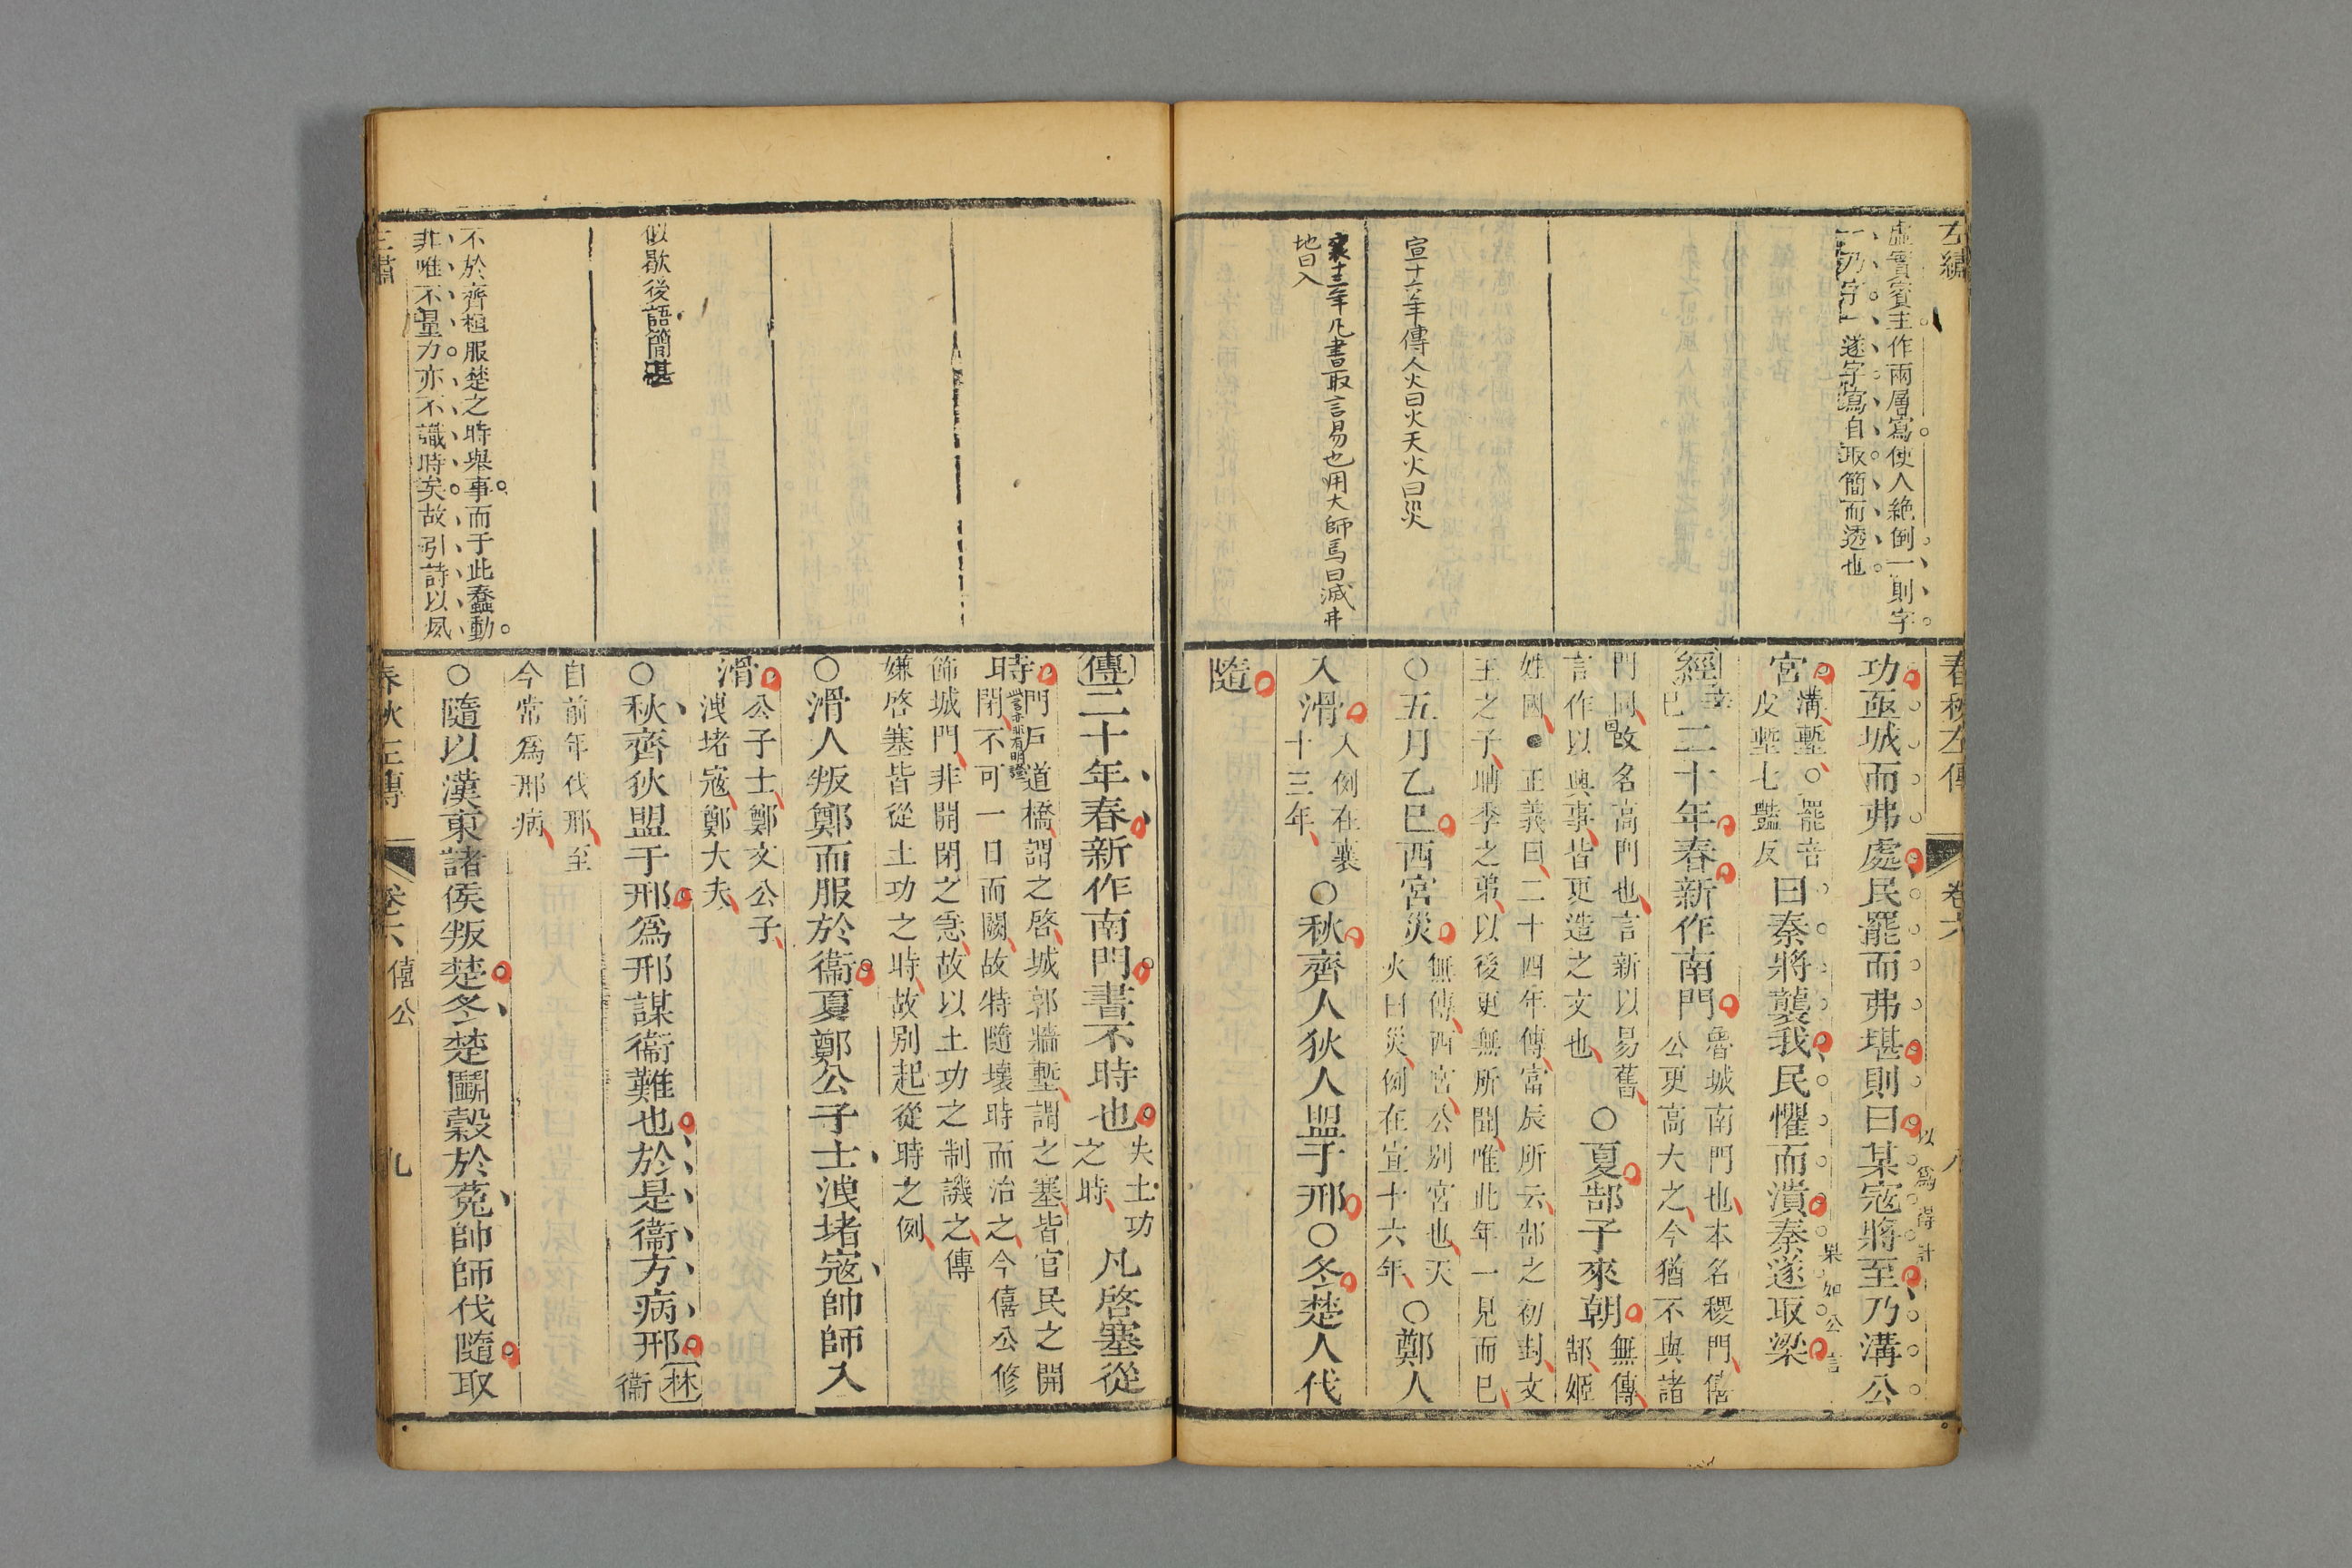 左繡
虛實賓主作兩層寫使人絕倒一則字
一乃字一遂字寫自取簡而透也
宣十六年傳人火曰火天火曰災
襄十三年凡書取言易也用大師焉曰滅弗
地曰入
春秋左傳 卷六 八
功亟城而弗處民罷而弗堪則曰某寇將至乃溝公
以爲得計
宮
溝塹○罷音
皮塹七豔反
曰秦將襲我民懼而潰秦遂取梁
果如公言
經
辛
巳
二十年春新作南門
魯城南門也本名稷門僖
公更高大之今猶不與諸
門同改名高門也言新以易舊
因
言作以興事皆更造之文也
○夏郜子來朝
無傳
郜姬
姓國●正義曰二十四年傳富辰所云郜之初封文
王之子聃季之弟以後更無所聞唯此年一見而已
○五月乙巳西宮災
無傳西宮公別宮也天
火曰災例在宣十六年
○鄭人
入滑
入例在襄
十三年
○秋齊人狄人盟于邢○冬楚人伐
隨
似歇後語簡甚
不於齊桓服楚之時舉事而于此蠢動
非唯不量力亦不識時矣故引詩以夙
傳二十年春新作南門書不時也
失土功
之時
凡啓塞從
時
門戶道橋謂之啓城郭牆塹謂之塞皆官民之開
閉不可一日而闕故特隨壞時而治之今僖公修
飾城門非開閉之急故以土功之制譏之傳
嫌啓塞皆從土功之時故別起從時之例
○滑人叛鄭而服於衞夏鄭公子士洩堵寇帥師入
滑
公子士鄭文公子
洩堵寇鄭大夫
○秋齊狄盟于邢爲邢謀衞難也於是衞方病邢
林
衞
自前年伐邢至
今常爲邢病
○隨以漢東諸侯叛楚冬楚鬭穀於菟帥師伐隨取
春秋左傳 卷六 僖公 九